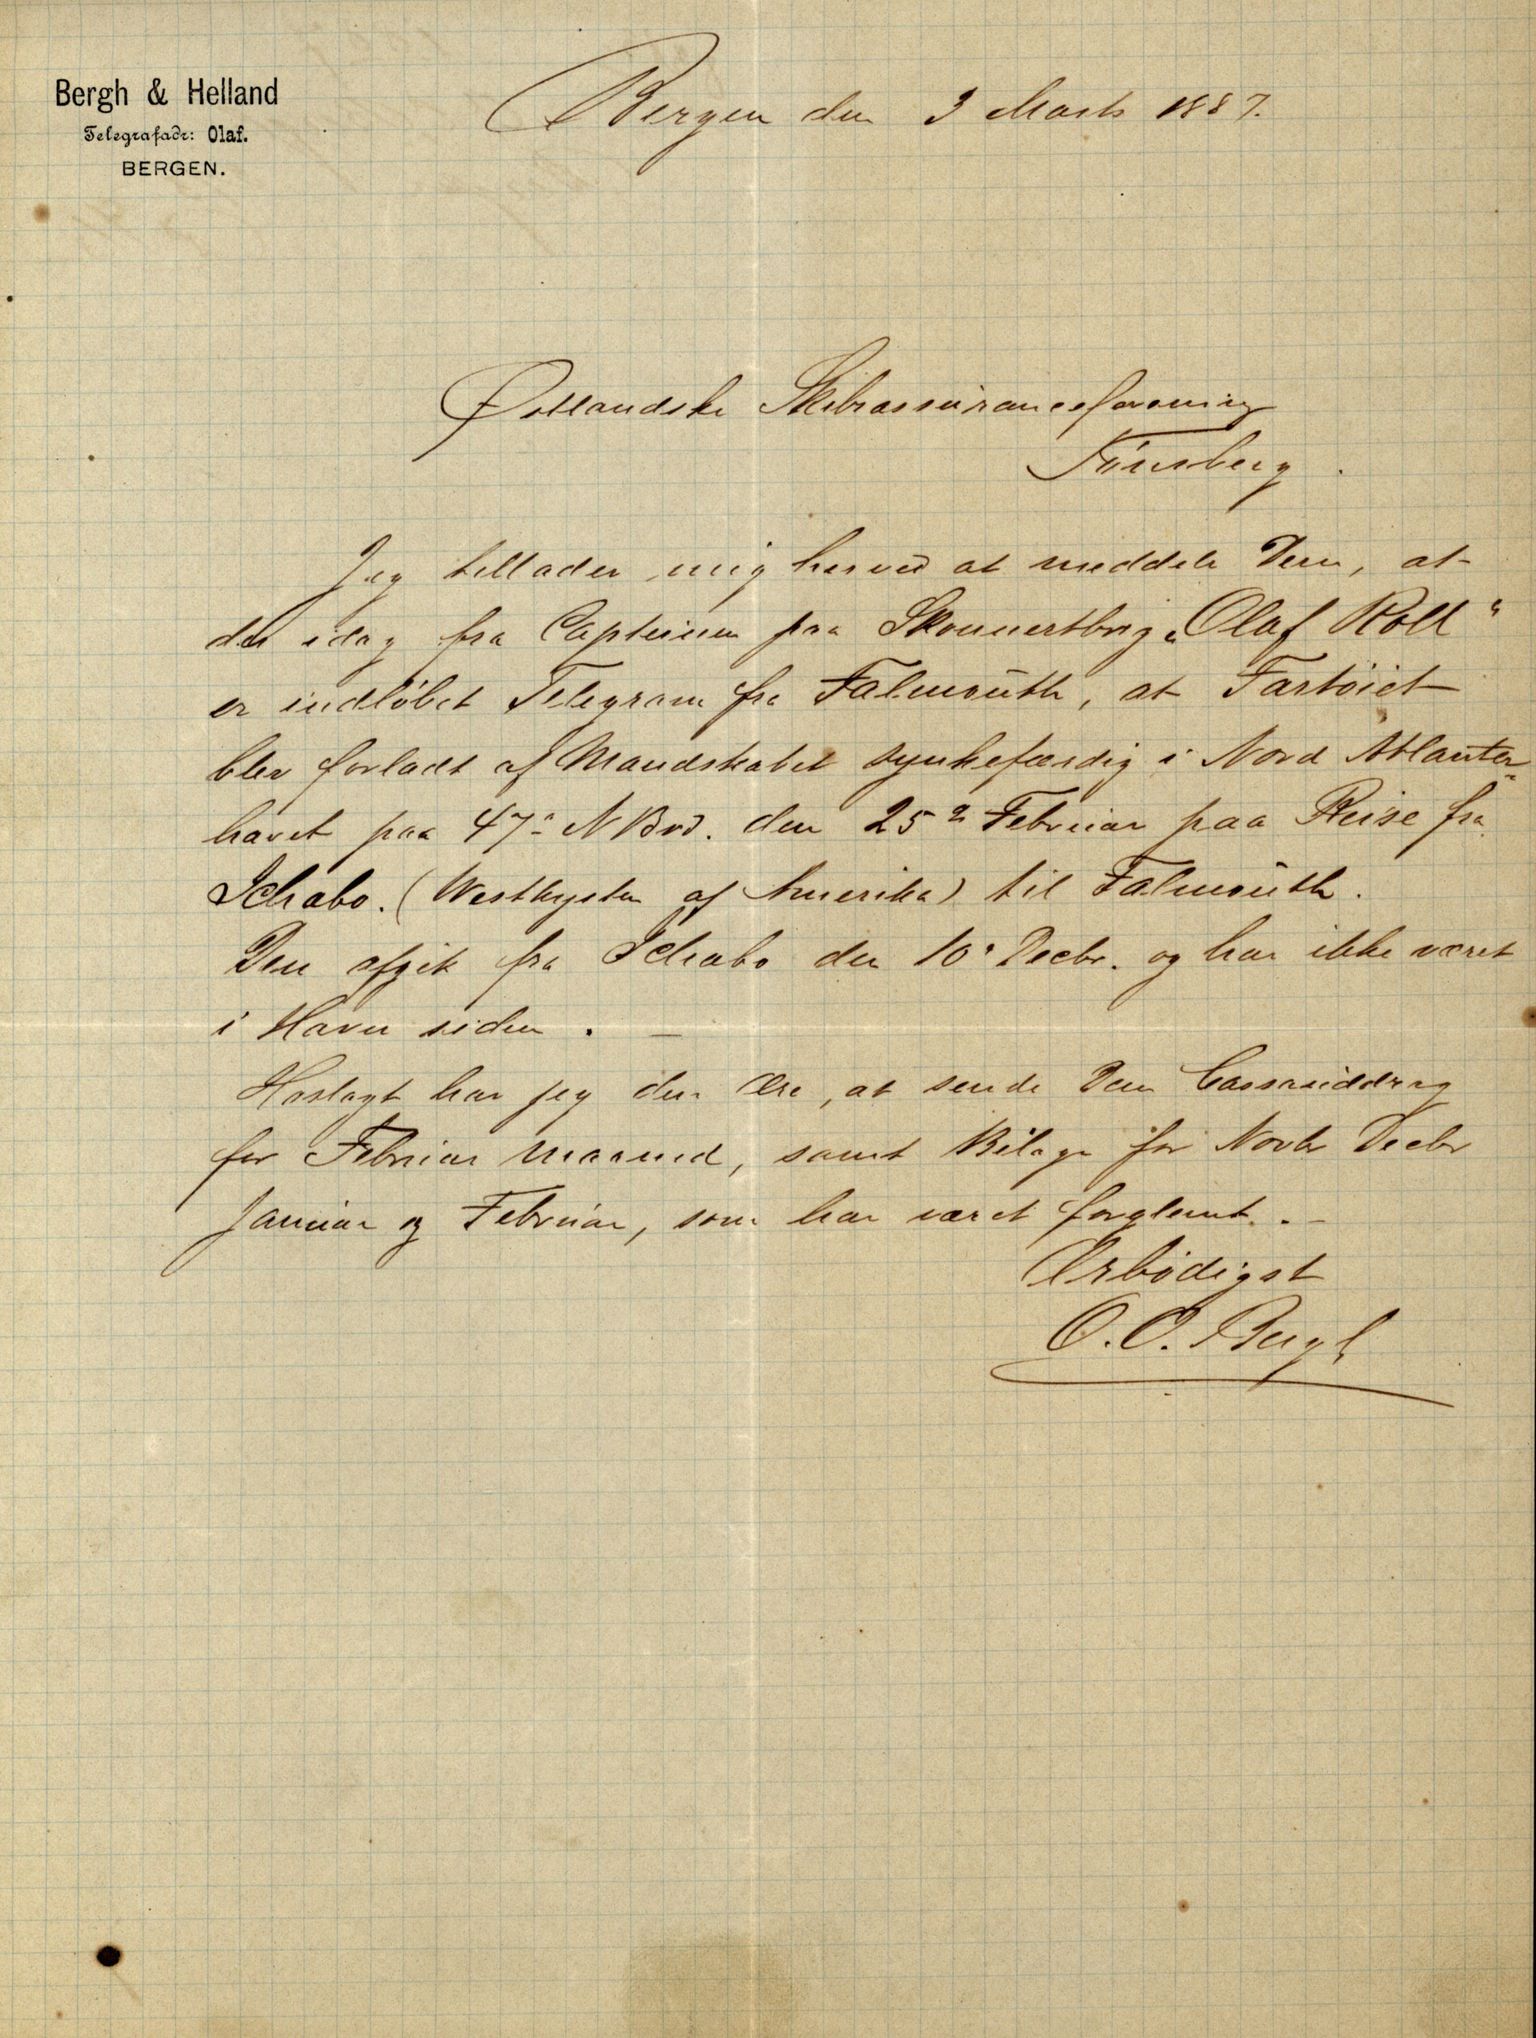 Bergh & Helland
Telegrafadr: Olaf.
BERGEN.
Bergen den 3 Marts 1887.
Østlandske Skibsassuranceforening
Tönsberg.
Jeg tillader mig herved at meddele Dem, at
der idag fra Capteinen paa Skonnertbrig „Olaf Roll“
er indløbet Telegram fra Falmouth, at Fartøiet
blev forladt af Mandskabet synkefærdig i Nord Atlanter-
havet paa 47° N Brd. den 25 Februar paa Reise fra
Ichabo. (Westkysten af Amerika) til Falmouth.
Den afgik fra Ichabo den 10 Decbr. og har ikke været
i Havn siden. —
Hoslagt har jeg den Ære, at sende Dem Cassauddrag
for Februar Maaned, samt Bilage for Novbr Decbr
Januar og Februar, som har været forglemt. —
Ærbødigst
O. O. Bergh